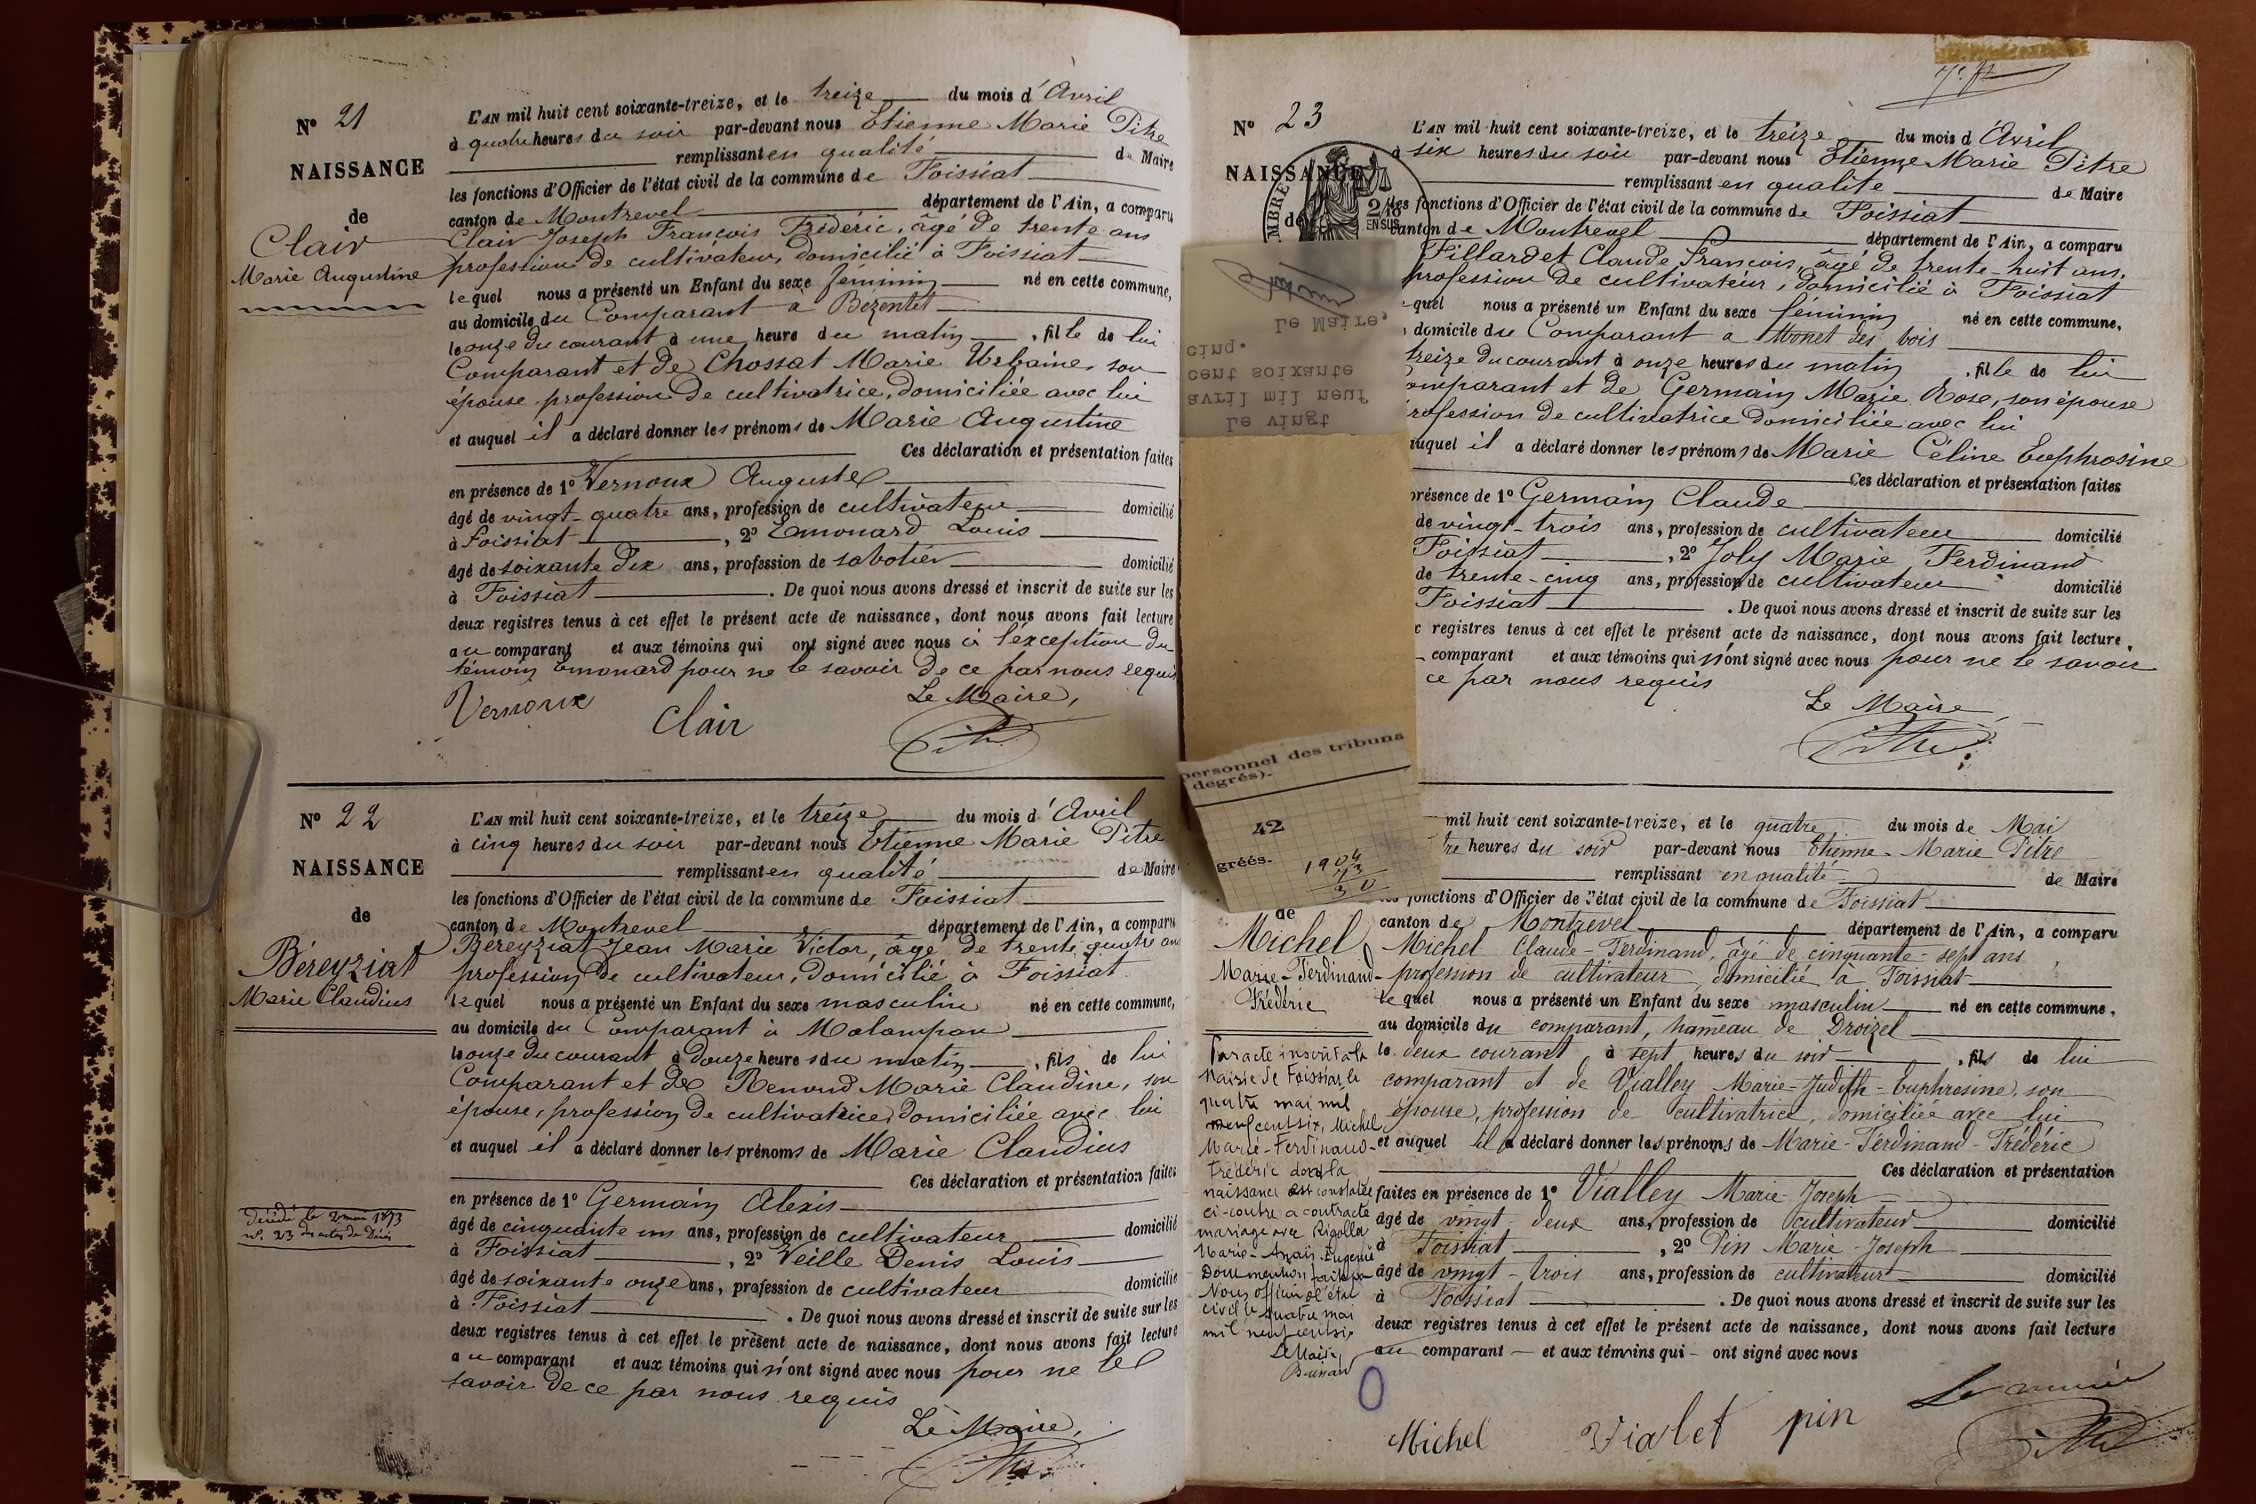 N° 21
NAISSANCE
de
Clair
Marie Augustine
L'AN mil huit cent soixante-treize, et le treize du mois d'Avril
à quatre heures du soir par-devant nous Etienne Marie Pitre
remplissant en qualité de Maire
les fonctions d'Officier de l'état civil de la commune de Foissiat
canton de Montrevel département de l'Ain, a comparu
Clair Joseph François Frédéric, âgé de trente ans
profession de cultivateur, domicilié à Foissiat
lequel nous a présenté un Enfant du sexe féminin né en cette commune,
au domicile du Comparant à Bezentet
le onze du courant à une heure du matin, fille de lui
Comparant et de Chossat Marie Urbaine, son
épouse profession de cultivatrice, domiciliée avec lui
et auquel il a déclaré donner les prénoms de Marie Augustine
Ces déclaration et présentation faites
en présence de 1° Vernoux Auguste
âgé de vingt-quatre ans, profession de cultivateur domicilié
à Foissiat, 2° Emonard Louis
âgé de soixante dix ans, profession de sabotier domicilié
à Foissiat. De quoi nous avons dressé et inscrit de suite sur les
deux registres tenus à cet effet le présent acte de naissance, dont nous avons fait lecture
au comparant et aux témoins qui ont signé avec nous à l'exception du
témoin Emonard pour ne le savoir de ce par nous requis
Vernoux Clair Le Maire,
N° 22
NAISSANCE
de
Béreyziat
Marie Claudius
décédé le 2 mai 1873
n°. 23 des actes de Décès
L'AN mil huit cent soixante-treize, et le treize du mois d'Avril
à cinq heures du soir par-devant nous Etienne Marie Pitre
remplissant en qualité de Maire
les fonctions d'Officier de l'état civil de la commune de Foissiat
canton de Montrevel département de l'Ain, a comparu
Béreyziat Jean Marie Victor, âgé de trente quatre ans
profession de cultivateur, domicilié à Foissiat
lequel nous a présenté un Enfant du sexe masculin né en cette commune,
au domicile du Comparant à Malampau
le onze du courant à douze heures du matin, fils de lui
Comparant et de Renoud Marie Claudine, son
épouse, profession de cultivatrice domiciliée avec lui
et auquel il a déclaré donner les prénoms de Marie Claudius
Ces déclaration et présentation faites
en présence de 1° Germain Alexis
âgé de cinquante uns ans, profession de cultivateur domicilié
à Foissiat, 2° Veille Denis Louis
âgé de soixante onze ans, profession de cultivateur domicilié
à Foissiat. De quoi nous avons dressé et inscrit de suite sur les
deux registres tenus à cet effet le présent acte de naissance, dont nous avons fait lecture
au comparant et aux témoins qui n'ont signé avec nous pour ne le
savoir de ce par nous requis
Le Maire,
N° 23
NAISSANCE
de
L'AN mil huit cent soixante-treize, et le treize du mois d'Avril
à six heures du soir par-devant nous Etienne Marie Pitre
remplissant en qualité de Maire
les fonctions d'Officier de l'état civil de la commune de Foissiat
canton de Montrevel département de l'Ain, a comparu
Fillardet Claude François, âgé de trente-huit ans,
profession de cultivateur, domicilié à Foissiat
quel nous a présenté un Enfant du sexe féminin né en cette commune,
domicile du Comparant à Monet des bois
treize du courant à onze heures du matin, fille de lui
omparant et de Germain Marie Rose, son épouse
rofession de cultivatrice domiciliée avec lui
auquel il a déclaré donner les prénoms de Marie Céline Euphrosine
Ces déclaration et présentation faites
présence de 1° Germain Claude
de vingt-trois ans, profession de cultivateur domicilié
Foissiat, 2° Joly Marie Ferdinand
de trente-cinq ans, profession de cultivateur domicilié
Foissiat. De quoi nous avons dressé et inscrit de suite sur les
registres tenus à cet effet le présent acte de naissance, dont nous avons fait lecture,
comparant et aux témoins qui n'ont signé avec nous pour ne le savoir
ce par nous requis
Le Maire,
Le Maire,
cinq.
cent soixante
avril mil neuf
Le vingt
personnel des tribuns
degrés).
42
gréés.
1904
73
30
de
Michel
Marie-Ferdinand-
Frédéric
Par acte inscrit à la
Mairie de Foissiat le
quatre mai mil
neuf cent six, Michel
Marie-Ferdinand-
Frédéric dont la
naissance est constatée
ci-contre a contracté
mariage avec Rigollet
Marie-Anaïs-Eugénie
Dont mention faite par
Nous officier de l'état
civil le quatre mai
mil neuf cent six
Le Maire,
mil huit cent soixante-treize, et le quatre du mois de Mai
tre heures du soir par-devant nous Etienne-Marie Pitre
remplissant en qualité de Maire
les fonctions d'Officier de l'état civil de la commune de Foissiat
canton de Montrevel département de l'Ain, a comparu
Michel Claude-Ferdinand, âgé de cinquante-sept ans
profession de cultivateur, domicilié à Foissiat
lequel nous a présenté un Enfant du sexe masculin né en cette commune,
au domicile du comparant, hameau de Droizel
le deux courant à sept heures du soir, fils de lui
comparant et de Vialley Marie-Judith-Euphrosine, son
épouse, profession de cultivatrice, domiciliée avec lui
et auquel il a déclaré donner les prénoms de Marie-Ferdinand-Frédéric
Ces déclaration et présentation
faites en présence de 1° Vialley Marie-Joseph
âgé de vingt-deux ans, profession de cultivateur domicilié
à Foissiat, 2° Pin Marie-Joseph
âgé de vingt-trois ans, profession de cultivateur domicilié
à Foissiat. De quoi nous avons dressé et inscrit de suite sur les
deux registres tenus à cet effet le présent acte de naissance, dont nous avons fait lecture
au comparant — et aux témoins qui — ont signé avec nous
Le maire
Michel Vialet pin